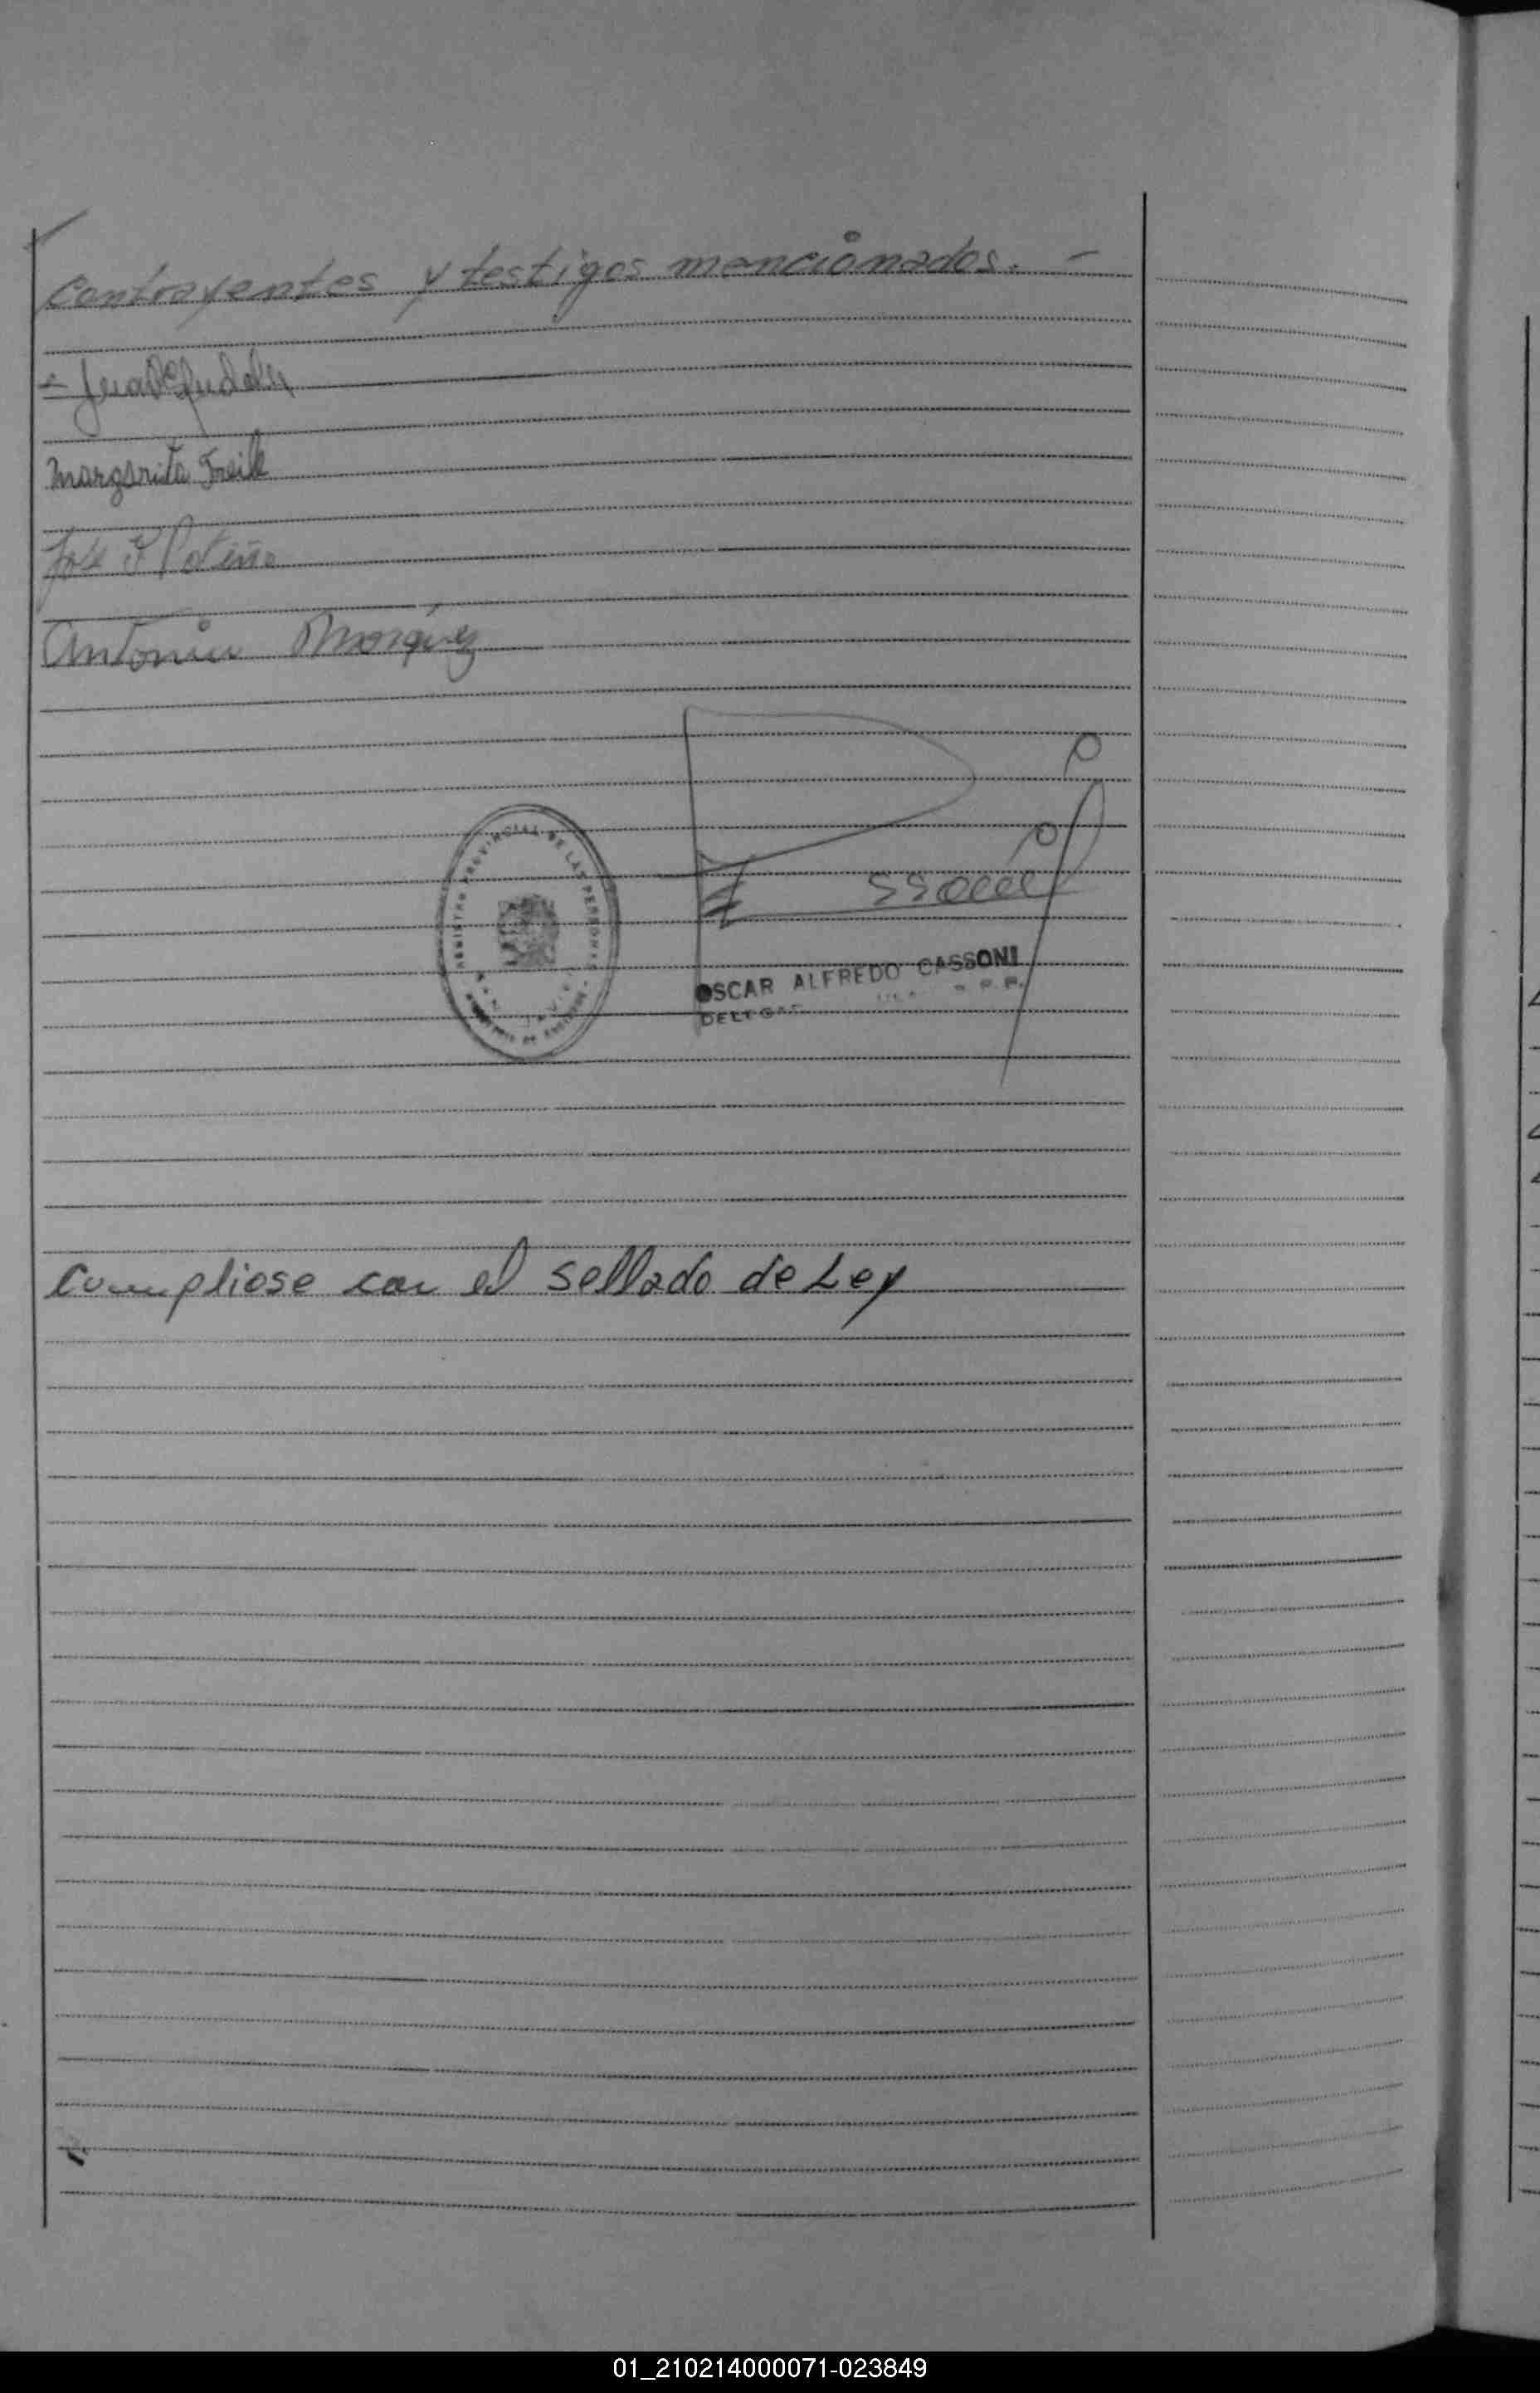 contrayentes y testigos mencionados. -
Margarita Freile
José Potiño
Antonio Márquez
REGISTRO PROVINCIAL DE LAS PERSONAS
OSCAR ALFREDO CASSONI
Cumpliose con el sellado de Ley
01_210214000071-023849